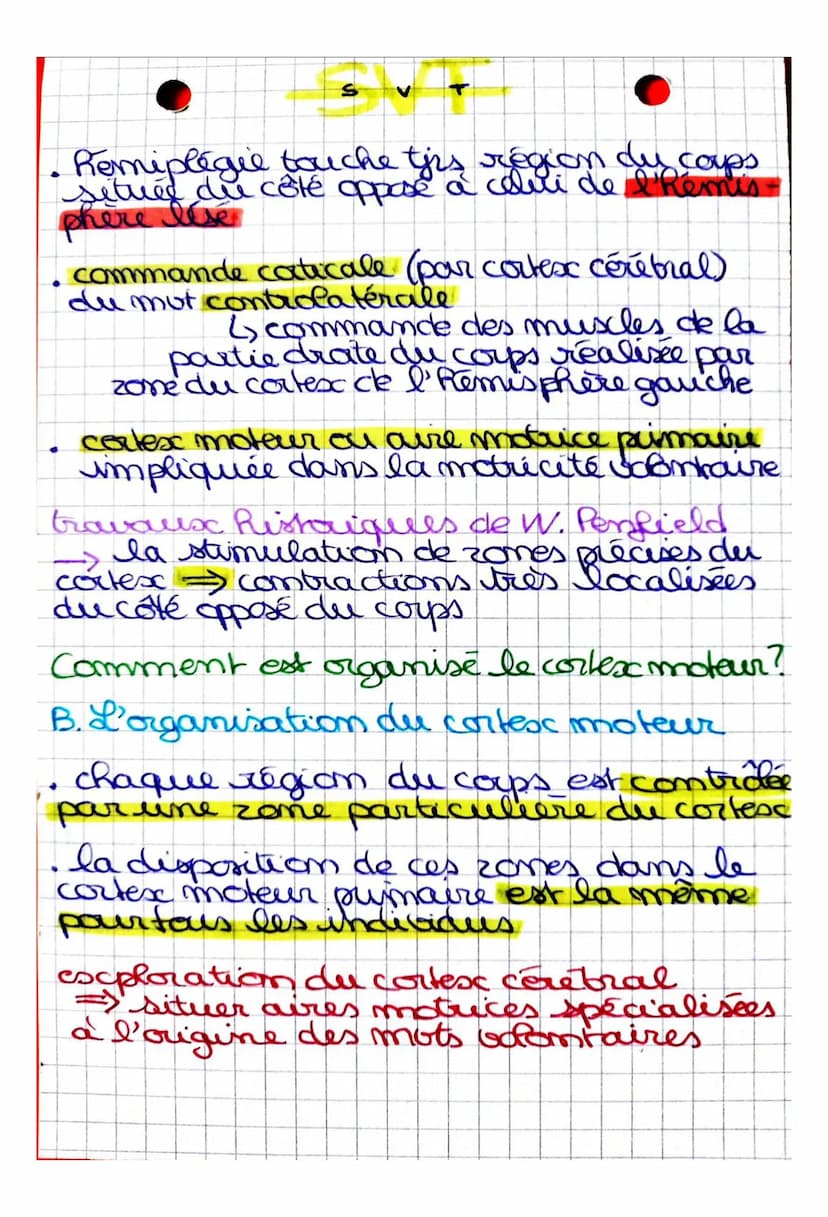 SVT
. Hémiplégie touche tjrs région du corps
située du côté opposé à celui de l'hémis-
phère lésé
. commande corticale (par cortex cérébral)
du mvt controlatérale
↳ commande des muscles de la
partie droite du corps réalisée par
zone du cortex de l'hémisphère gauche
. cortex moteur ou aire motrice primaire
impliquée dans la motricité volontaire
travaux historiques de W. Penfield
→ la stimulation de zones précises du
cortex ⇒ contractions très localisées
du côté opposé du corps
Comment est organisé le cortex moteur?
B. L'organisation du cortex moteur
. chaque région du corps est contrôlée
par une zone particulière du cortex
. la disposition de ces zones dans le
cortex moteur primaire est la même
pour tous les individus
exploration du cortex cérébral
⇒ situer aires motrices spécialisées
à l'origine des mvts volontaires